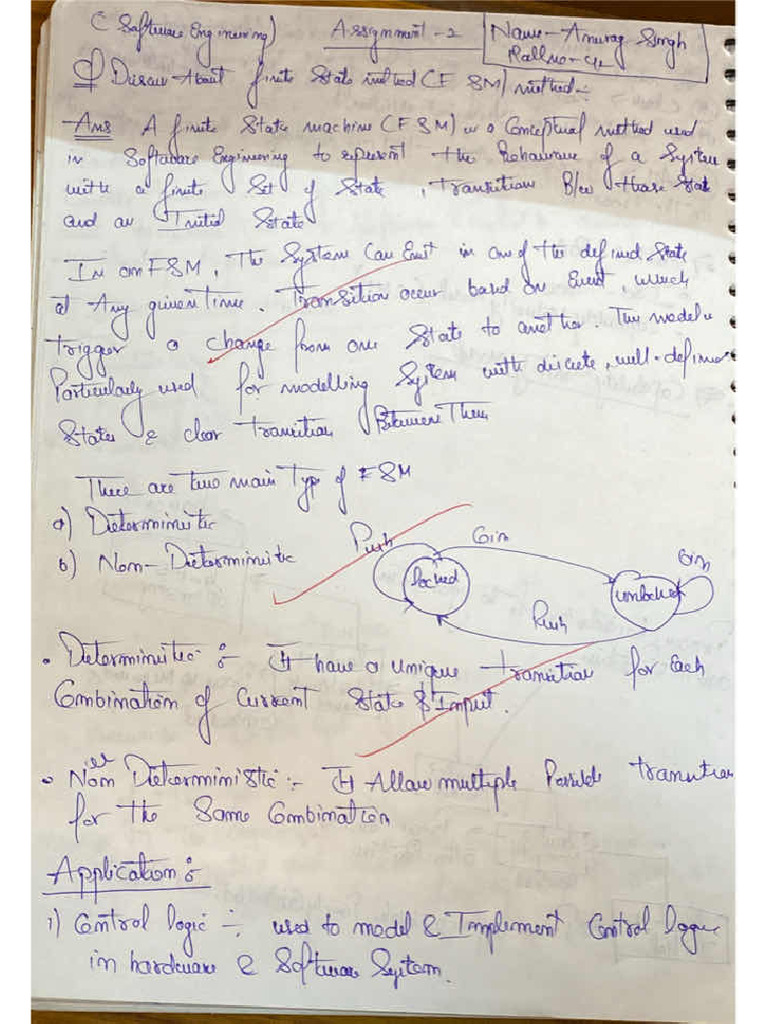 (Software Engineering) Assignment-2 Name-Anurag Singh
Rollno-
Q Discuss About finite State method (FSM) method:-
Ans A finite State machine (FSM) is a Conceptual method used
in Software Engineering to represent the Behaviour of a System
with a finite Set of State, Transition B/w those State
and an Initial State
In an FSM, The System Can Exist in one of the defined State
at Any given Time. Transition occur based on Event, which
Trigger a change from one State to another. The model is
Particularly used for modelling System with discrete, well-defined
States & clear transition Between Them
There are two main Type of FSM
a) Deterministic
b) Non-Deterministic
Push Coin
Locked unlocked Coin
Push
• Deterministic :- It have a unique transition for Each
Combination of Current State & Input.
• Non Deterministic :- It Allow multiple Possible transition
for the Same Combination
Application :-
1) Control logic :- used to model & Implement Control logic
in hardware & Software System.